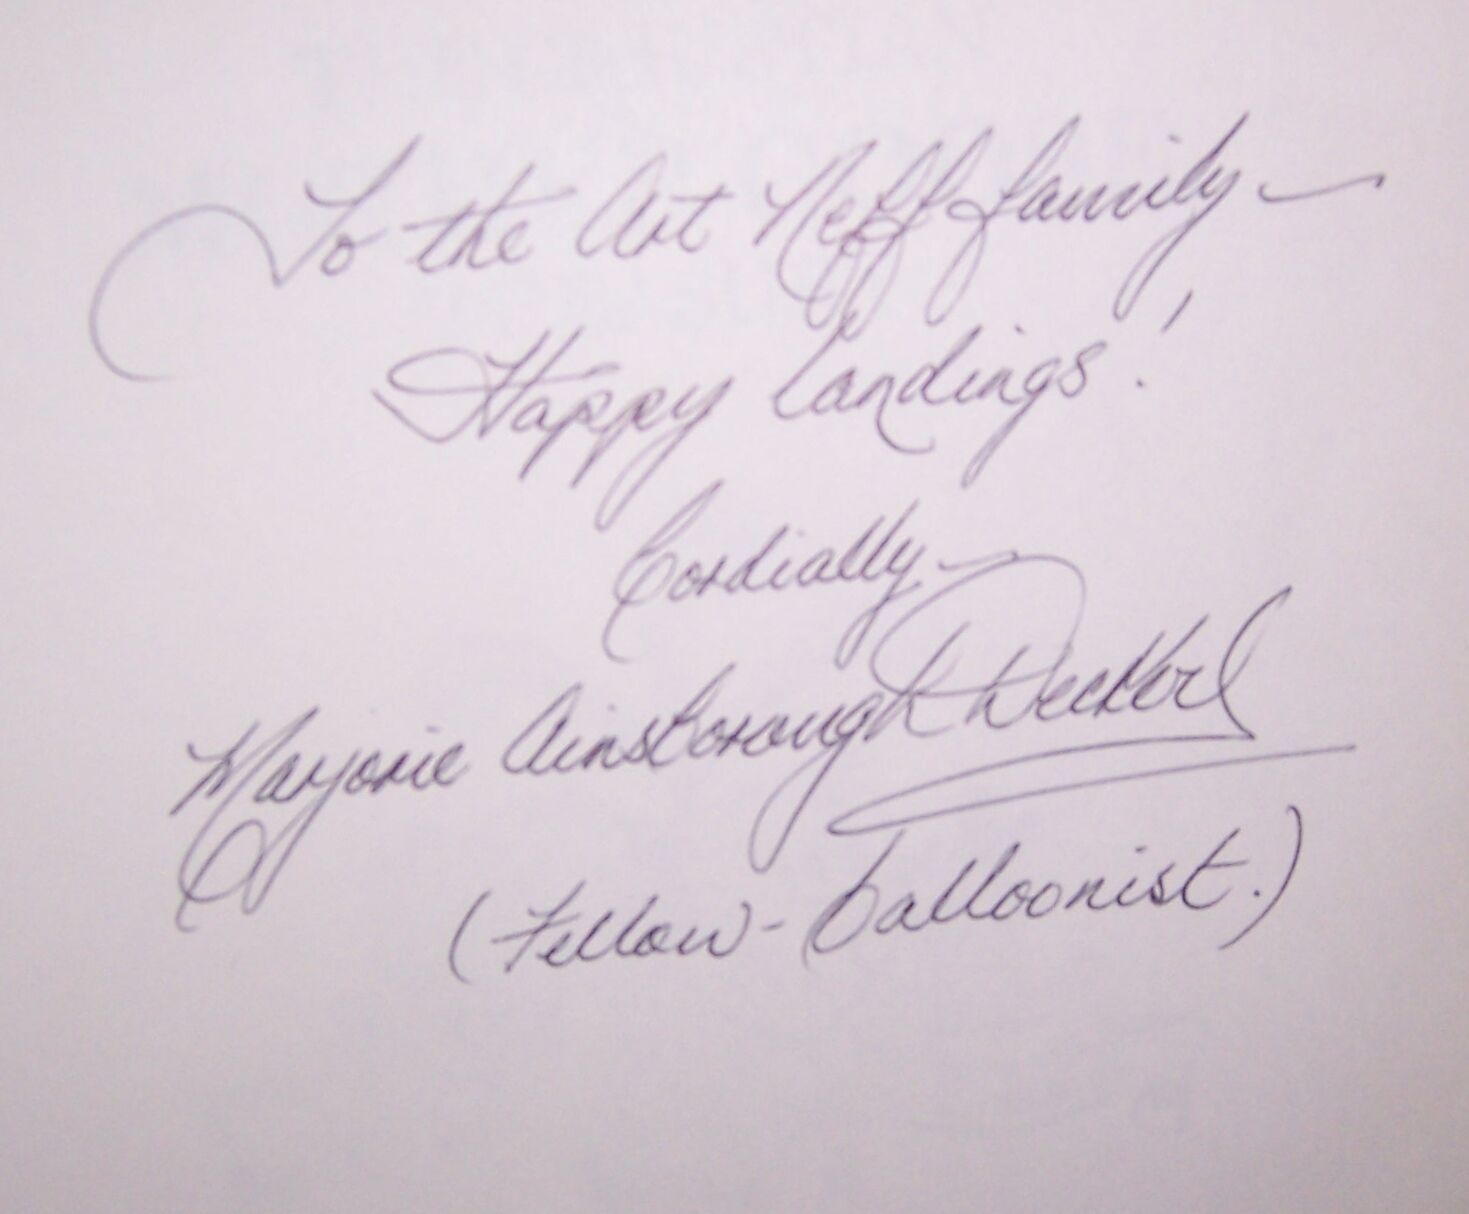 To the Art Neff family —
Happy Landings!
Cordially —
Marjorie Ainsborough Decker
(Fellow-balloonist.)